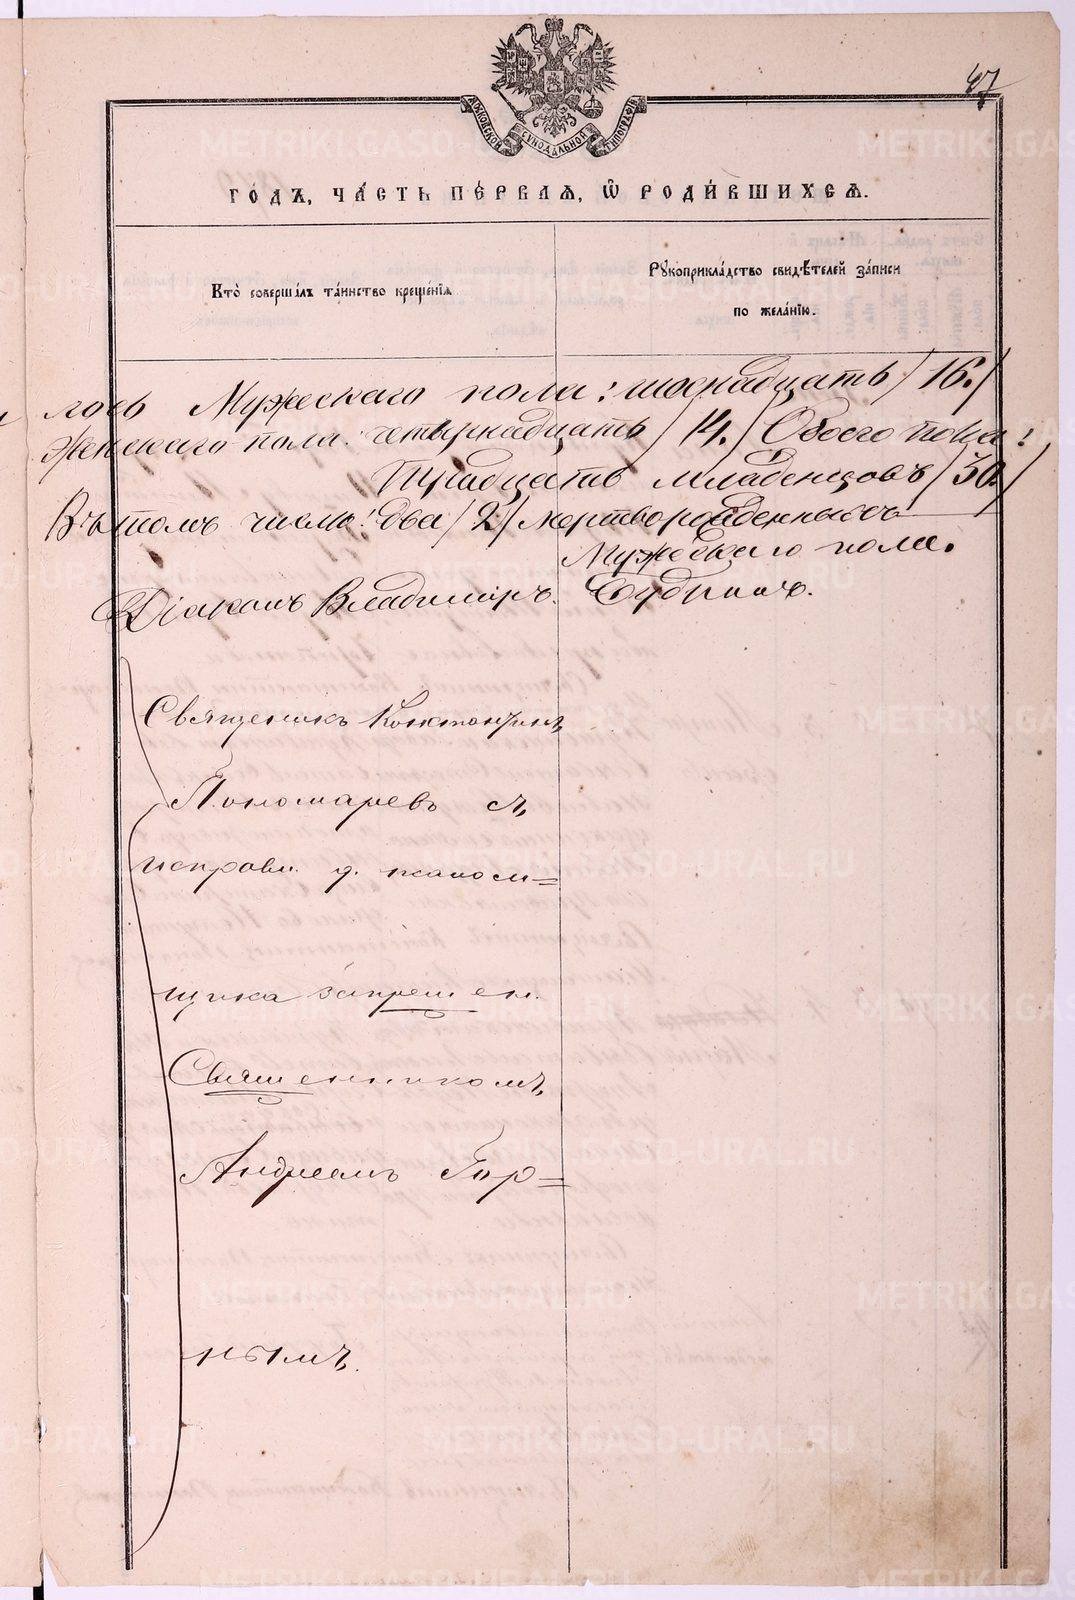 47
МОСКОВСКОЙ СѴНОДАЛЬНОЙ ТИПОГРАФІИ
ГО́ДЪ, ЧА́СТЬ ПЕ́РВАѦ, Ѽ РОДИ́ВШИХСѦ.
Кто̀ соверша́лъ та́инство креще́нїѧ
Рꙋкоприкла́дство свидѣ́телей за́писи
по жела́нїю.
лось Мужескаго пола: шеснадцать /16./
Женскаго пола: четырнадцать /14./ Обоего пола:
Тридцать младенцовъ /30/
Въ томъ числѣ: два /2/ мертворожденныхъ
Мужескаго пола.
Діаконъ Владиміръ
Священикъ Константинъ
Пономаревъ съ
исправл. д. псалом=
щика запрещен.
Священникомъ
Андреемъ Гор=
нымъ.
METRIKI.GASO-URAL.RU